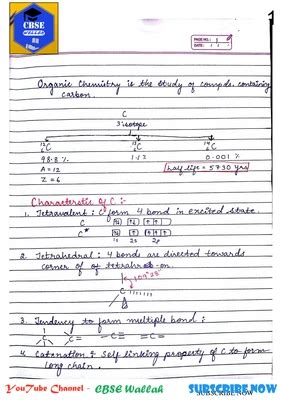 CBSE
WALLAH
1
PAGE NO.:
DATE:
Organic Chemistry is the study of compds. containing
Carbon.
C
3 isotope
12C 13C 14C
6 6 6
98.8 % 1.1 % 0.001 %
A = 12 half life = 5730 yrs
Z = 6
Characterstic of C :-
1. Tetravalent : C form 4 bond in excited state.
C
C*
1s 2s 2p
2. Tetrahedral : 4 bonds are directed towards
corner of
109°28'
C
3. Tendency to form multiple bond :
C= =C= -C≡
4. Catanation : Self linking property of C to form
long chain.
YouTube Channel - CBSE Wallah SUBSCRIBE NOW
SUBSCRIBE NOW